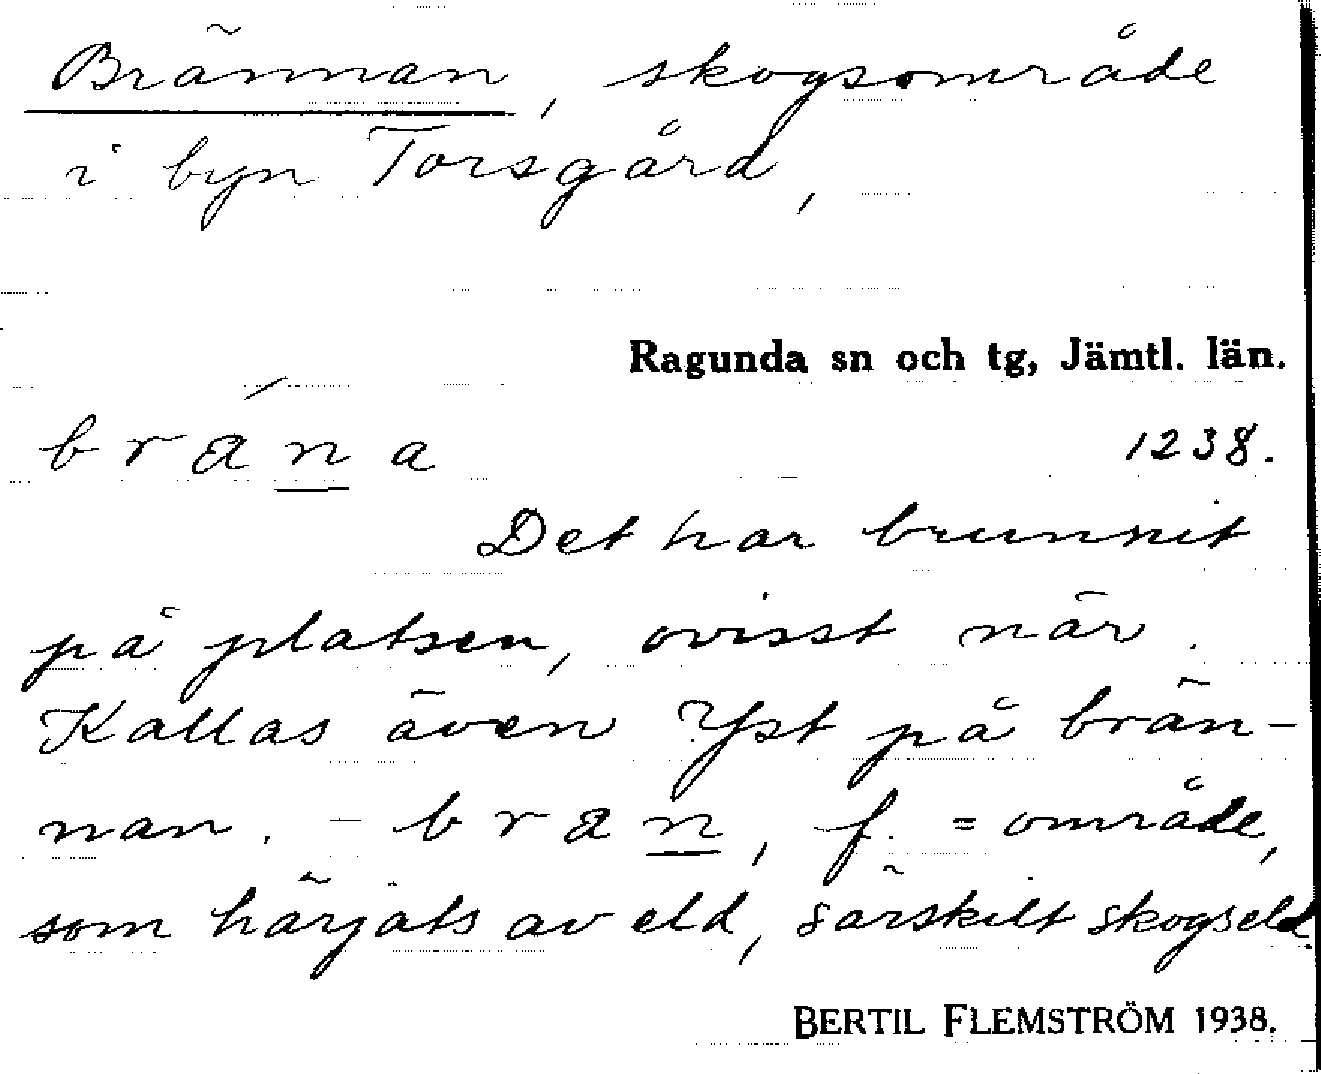 Brännan, skogsområde
i byn Torsgård,
Ragunda sn och tg, Jämtl. län.
bráṉa
1238.
Det har brunnit
på platsen, ovisst när.
Kallas även Yst på brän-
nan. - braṉ, f. = område,
som härjats av eld, särskilt skogseld.
BERTIL FLEMSTRÖM 1938.